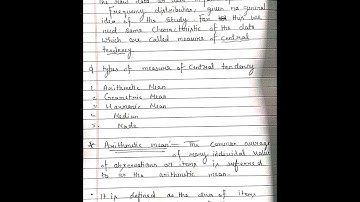 Frequency distribution given no general
idea of the study for this we
need some characteristic of the data
which are called measure of central
tendency
Q types of measure of Central tendency
1. Arithmetic Mean
2. Geometric Mean
3. Harmonic Mean
4. Median
5. Mode
* Arithmetic mean :- The common average
of many individual
of observations or items is referred
to as the arithmetic mean.
• It is defined as the sum of items